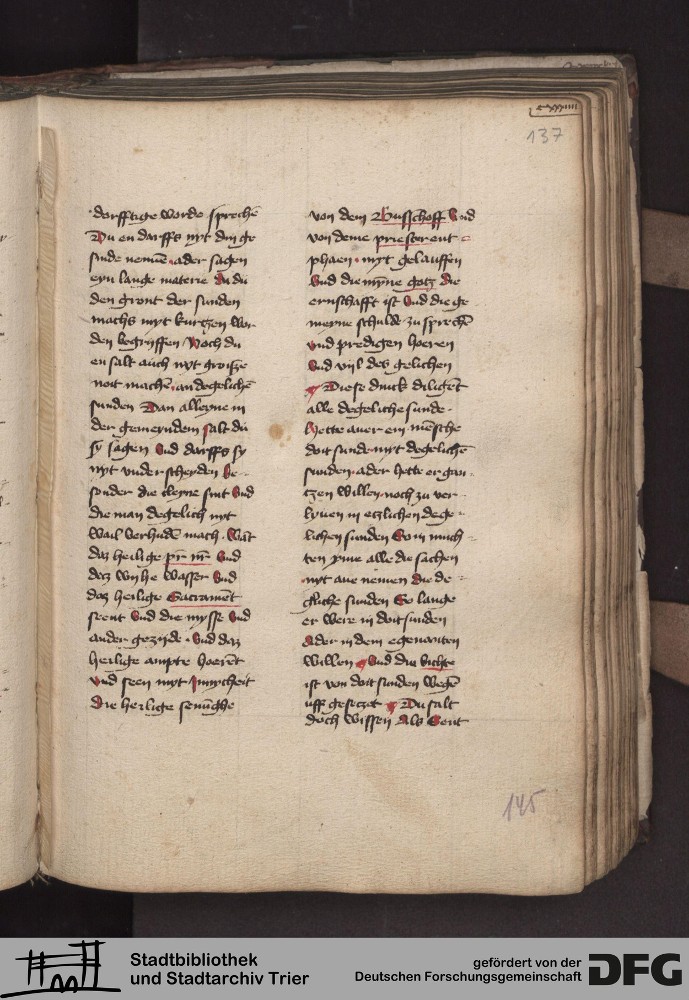 137
dorfftige worde sprechē
Du en darffs nyt din ge
sinde nemen ader sagen
eyn lange materie da du
den gront der sunden
machs myt kurtzen wor
den begriffen Noch du
en salt auch nyt groisze
noit machen an degelichē
sunden Dan alleyne in
der gemeyndem salt du
sy sagen Vnd darffs sy
nyt vnderscheyden be
sonder die cleyne sint Vnd
die man degelich nyt
wail verhudē mach. Wāt
daz heilige pr̄ nr̄ Vnd
daz wyhe wasser Vnd
daz heilige Sacramēt
seent Vnd die mysse Vnd
ander gezijde. Vnd daz
heilige ampte hoerēt
vnd seen myt Innicheit
Die heilige
von dem Busschoff Vnd
von deme priester ent
phaen. myt gelauffen
Vnd die myne gotz die
ernschafft ist Vnd die ge
meyne schulde zu sprechē
vnd predigen hoeren
Vnd vijl des gelichen
Diese druck diligēt
alle degeliche sunde.
Hette auer ein mēsche
doit sunde myt degelichē
sunden. ader hette er gan
tzen willen noch zu ver
lyuen in etzlichen dege
lichen sunden So in moch
ten yme alle die sachen
nyt aue nemen Die de
gliche sunden So lange
er were in doit sunden
Ader in dem egenanten
willen Vnd die bichte
ist von doit sunden wegē
uff gesetzet Du salt
doch wissen Als Sent
145
Stadtbibliothek
und Stadtarchiv Trier
gefördert von der
Deutschen Forschungsgemeinschaft
DFG